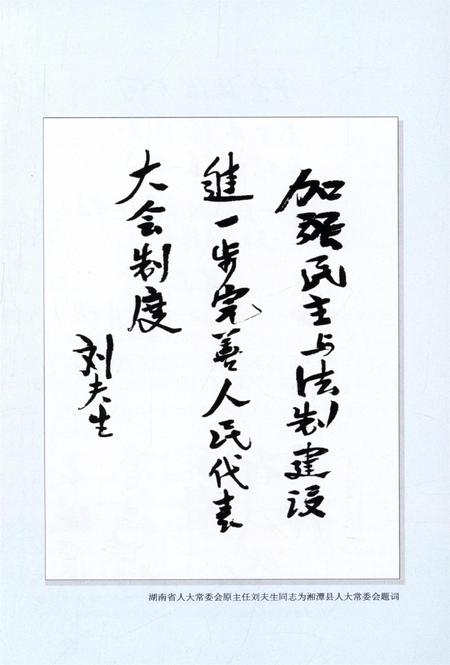 加强民主与法制建设
進一步完善人民代表
大会制度
刘夫生
湖南省人大常委会原主任刘夫生同志为湘潭县人大常委会题词